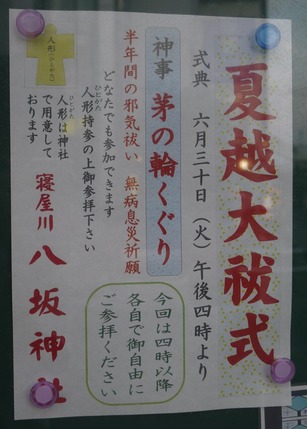 夏越大祓式
式典 六月三十日(火)午後四時より
神事 茅の輪くぐり
半年間の邪気祓い 無病息災祈願
どなたでも参加できます
人形持参の上御参拝下さい
ひとがた
人形は神社
ひとがた
で用意して
おります
人形(ひとがた)
今回は四時以降
各自で御自由に
ご参拝ください
寝屋川 八坂神社